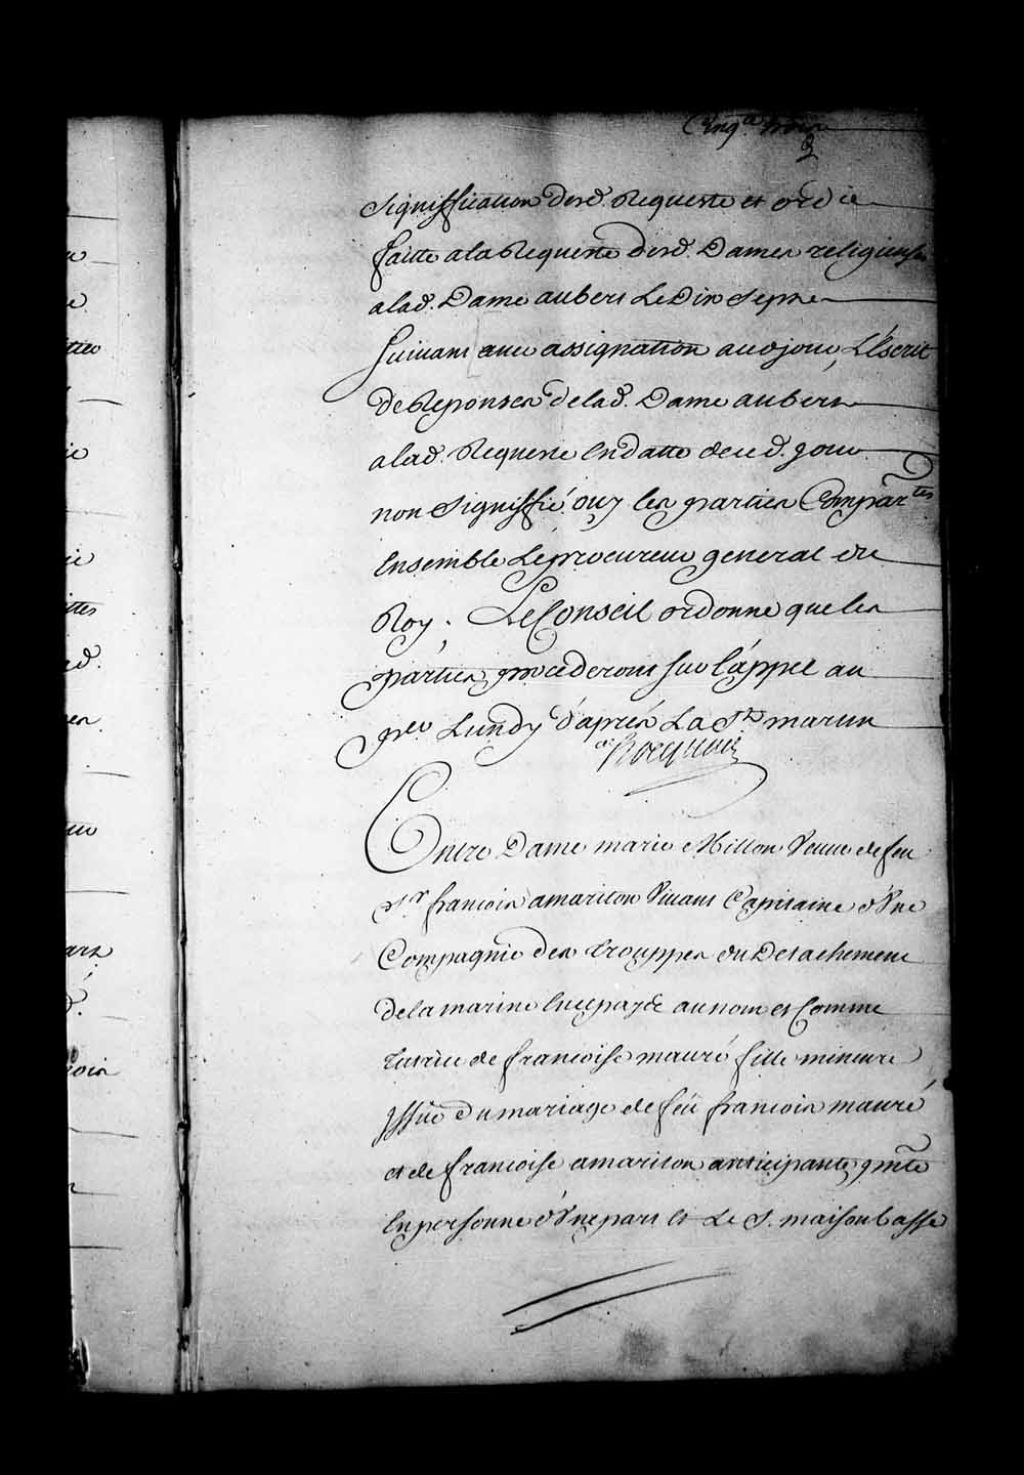 Cinq.te trois
Signiffication desd. Requeste et ord.ce
faitte a la Requeste desd. Dames religieuses
a lad. Dame aubert Le Dix Sept
Suivant avec assignation aud jour, L'Escrit
de Reponses de lad. Dame aubert
a lad. Requeste En datte de ced. jour
non Signiffié. ouy les parties Compar.tes
Ensemble Le procureur general du
Roy. Le Conseil ordonne que les
parties procederont sur l'appel au
p.er Lundy d'après La S.t martin
Hocquart
Entre Dame marie Millon Veuve de feu
S.r francois amariton Vivant Capitaine d'Une
Compagnie des trouppes du Detachement
de la marine En ce pays au nom et Comme
tutrice de francoise mauré fille mineure
Issüe du mariage de feü francois mauré
et de francoise amariton anticipante, p.nte
En personne d'Une part Et Le S. maisonbasse
ties
ie
ttes
ed.
ars
d.
rois